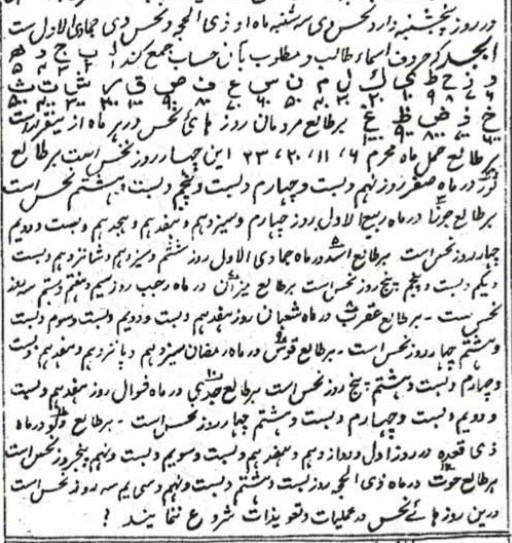 در روز پنجشنبه دارد نحس دی سه شنبه ماه او ذی الحجه و نحس دی جمادی الاول ست
ابجد کے حروف اسماء طالب و مطلوب بآن حساب جمع کند ا ب ج د ه
و ز ح ط ی ک ل م ن س ع ف ص ق ر ش ت ث
خ ذ ض ظ غ بر طالع مردمان روز هائ نحس در هر ماه از ینقرار است
بر طالع حمل ماه محرم ۶، ۱۱، ۲۰، ۲۳ این چهار روز نحس است بر طالع
ثور در ماه صفر روز نهم و بست و چهارم و بست و پنجم و بست و هشتم نحس است
بر طالع جوزا در ماه ربیع الاول روز چهارم و سیزدهم و هفدهم و هیجدهم و بست و دویم
چهار روز نحس است بر طالع اسد در ماه جمادی الاول روز ششم و سیزدهم و شانزدهم و بست
و یکم و بست و پنجم پنج روز نحس است بر طالع میزان در ماه رجب روز سیم و هفتم و بستم سه روز
نحس ست - بر طالع عقرب در ماه شعبان روز هفدهم و بست و دویم و بست و سوم و بست
و هشتم چهار روز نحس است - بر طالع قوس در ماه رمضان سیزدهم و پانزدهم و هفدهم و بست
و چهارم و بست و هشتم پنج روز نحس است بر طالع جدی در ماه شوال روز هفدهم و بست
و دویم و بست و چهارم و بست و هشتم چهار روز نحس است - بر طالع دلو در ماه
ذی قعده در روز اول و دوازدهم و هفدهم و بست و سویم و بست و نهم پنجروز نحس است
بر طالع حوت در ماه ذی الحجه روز بست و هشتم و بست و نهم و سی یم سه روز نحس است
درین روز هائے نحس در عملیات و تعویذات شروع ننمایند ؟